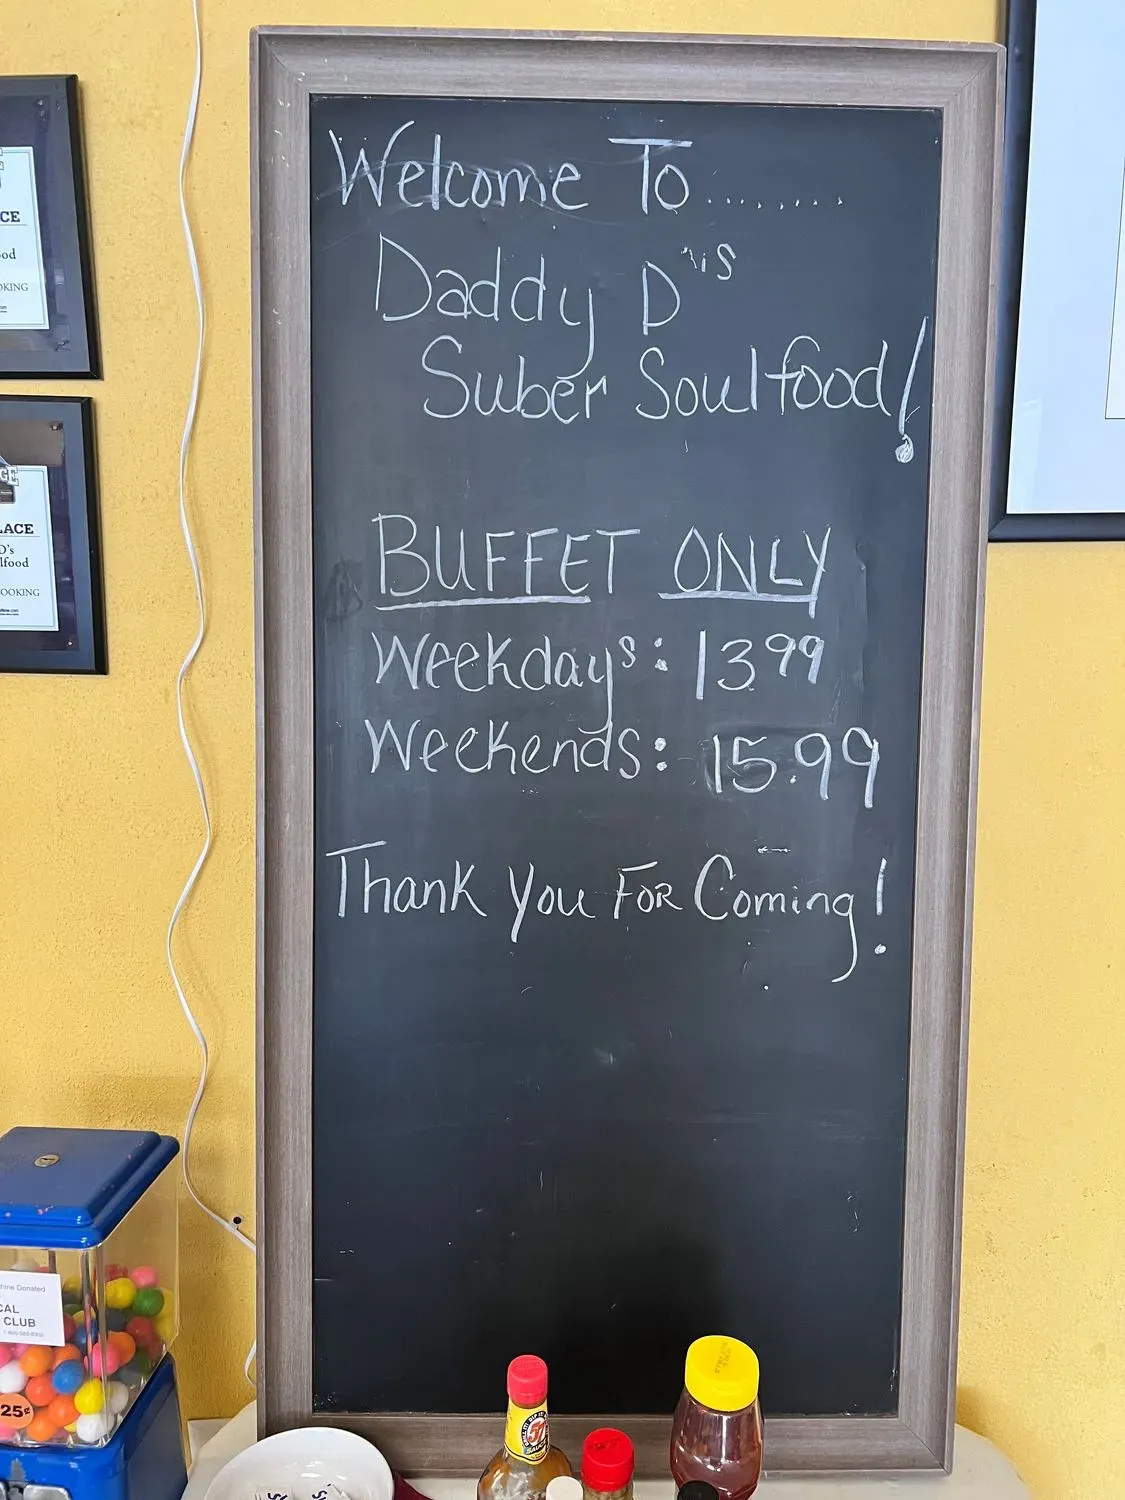 Welcome To........
Daddy D"s
Suber Soulfood!
BUFFET ONLY
Weekdays: 13 99
Weekends: 15.99
Thank You FOR Coming!
CE
ood
OKING
GE
LACE
D's
lfood
OOKING
hine Donated
CAL
CLUB
25¢
57
SAUCE